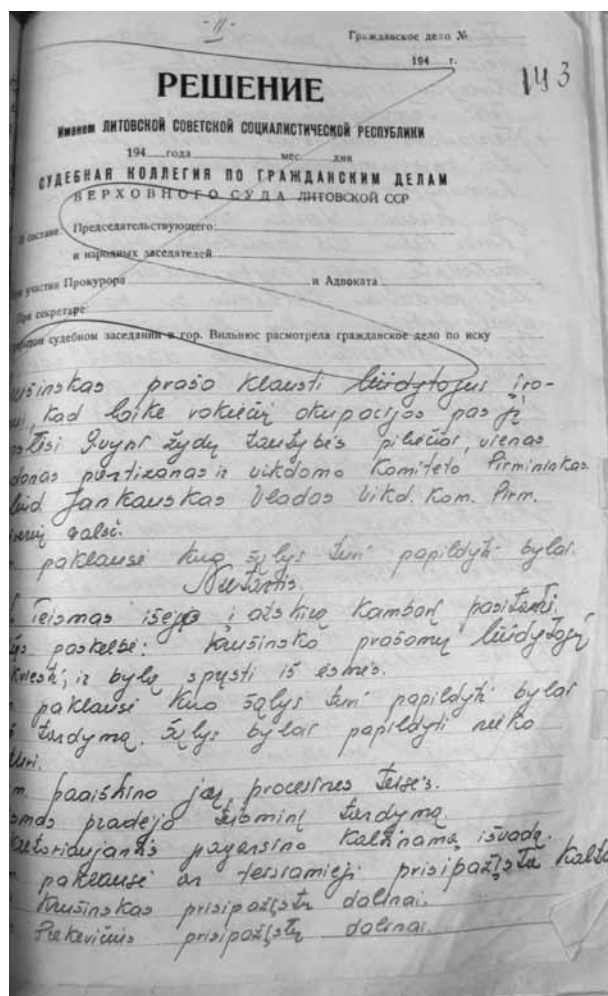 - 11 -
Гражданское дело №
194 г.
143
РЕШЕНИЕ
Именем ЛИТОВСКОЙ СОВЕТСКОЙ СОЦИАЛИСТИЧЕСКОЙ РЕСПУБЛИКИ
194 года мес. дня
СУДЕБНАЯ КОЛЛЕГИЯ ПО ГРАЖДАНСКИМ ДЕЛАМ
ВЕРХОВНОГО СУДА ЛИТОВСКОЙ ССР
В составе: Председательствующего:
и народных заседателей
При участии Прокурора и Адвоката
При секретаре:
судебном заседании в гор. Вильнюс расмотрела гражданское дело по иску
ušinskas prašo klausti liūdytojus įro-
kad laike vokiečių okupacijos pas jį
žydų tautybės piliečiai, vienas
donas partizanas ir vikdomo Komiteto Pirminiakas.
Jankauskas Vladas Vikd. Kom. Pirm.
valsč.
paklausė kuo šalys turi papildyti bylai.
Nutartis.
Teismas išėjęs į atskirą kambarį pasitarti.
paskelbė: Krušinsko prašomų liūdytojų
kviesti, ir bylą spręsti iš esmės.
paklausė kuo šąlys turi papildyti bylai
tardymą. Šąlys bylai papildyti nieko
turi.
m. paaiškino jų procesines teises.
ismas pradėjo teisminį tardymą.
pagarsino kaltinamą išvadą.
paklausė ar teisiamieji prisipažįsta kalta
Krušinskas prisipažįsta dalinai.
Piekevičius prisipažįsta dalinai.